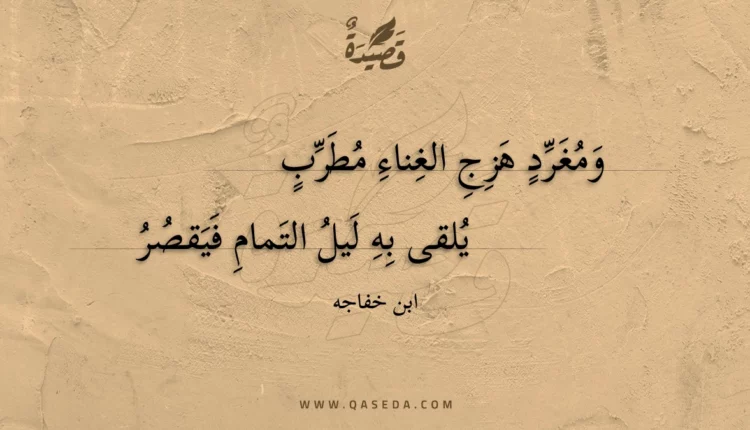 قَصِيدَةٌ
وَمُغَرِّدٍ هَزِجِ الغِناءِ مُطَرِّبٍ
يُلقى بِهِ لَيلُ التَمامِ فَيَقصُرُ
ابن خفاجه
WWW.QASEDA.COM